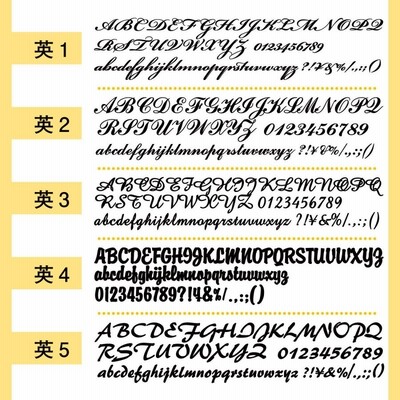 英1
ABCDEFGHIJKLMNOPQ
RSTUVWXYZ 0123456789
abcdefghijklmnopqrstuvwxyz ?!¥&%/.,:;()
英2
ABCDEFGHIJKLMNOPQ
RSTUVWXYZ 0123456789
abcdefghijklmnopqrstuvwxyz ?!¥&%/.,:;()
英3
ABCDEFGHIJKLMNOPQ
RSTUVWXYZ 0123456789
abcdefghijklmnopqrstuvwxyz ?!¥&%/.,:;()
英4
ABCDEFGHIJKLMNOPQRSTUVWXYZ
abcdefghijklmnopqrstuvwxyz
0123456789?!¥&%/.,:;()
英5
ABCDEFGHIJKLMNOPQ
RSTUVWXYZ 0123456789
abcdefghijklmnopqrstuvwxyz ?!¥&%/.,:;()